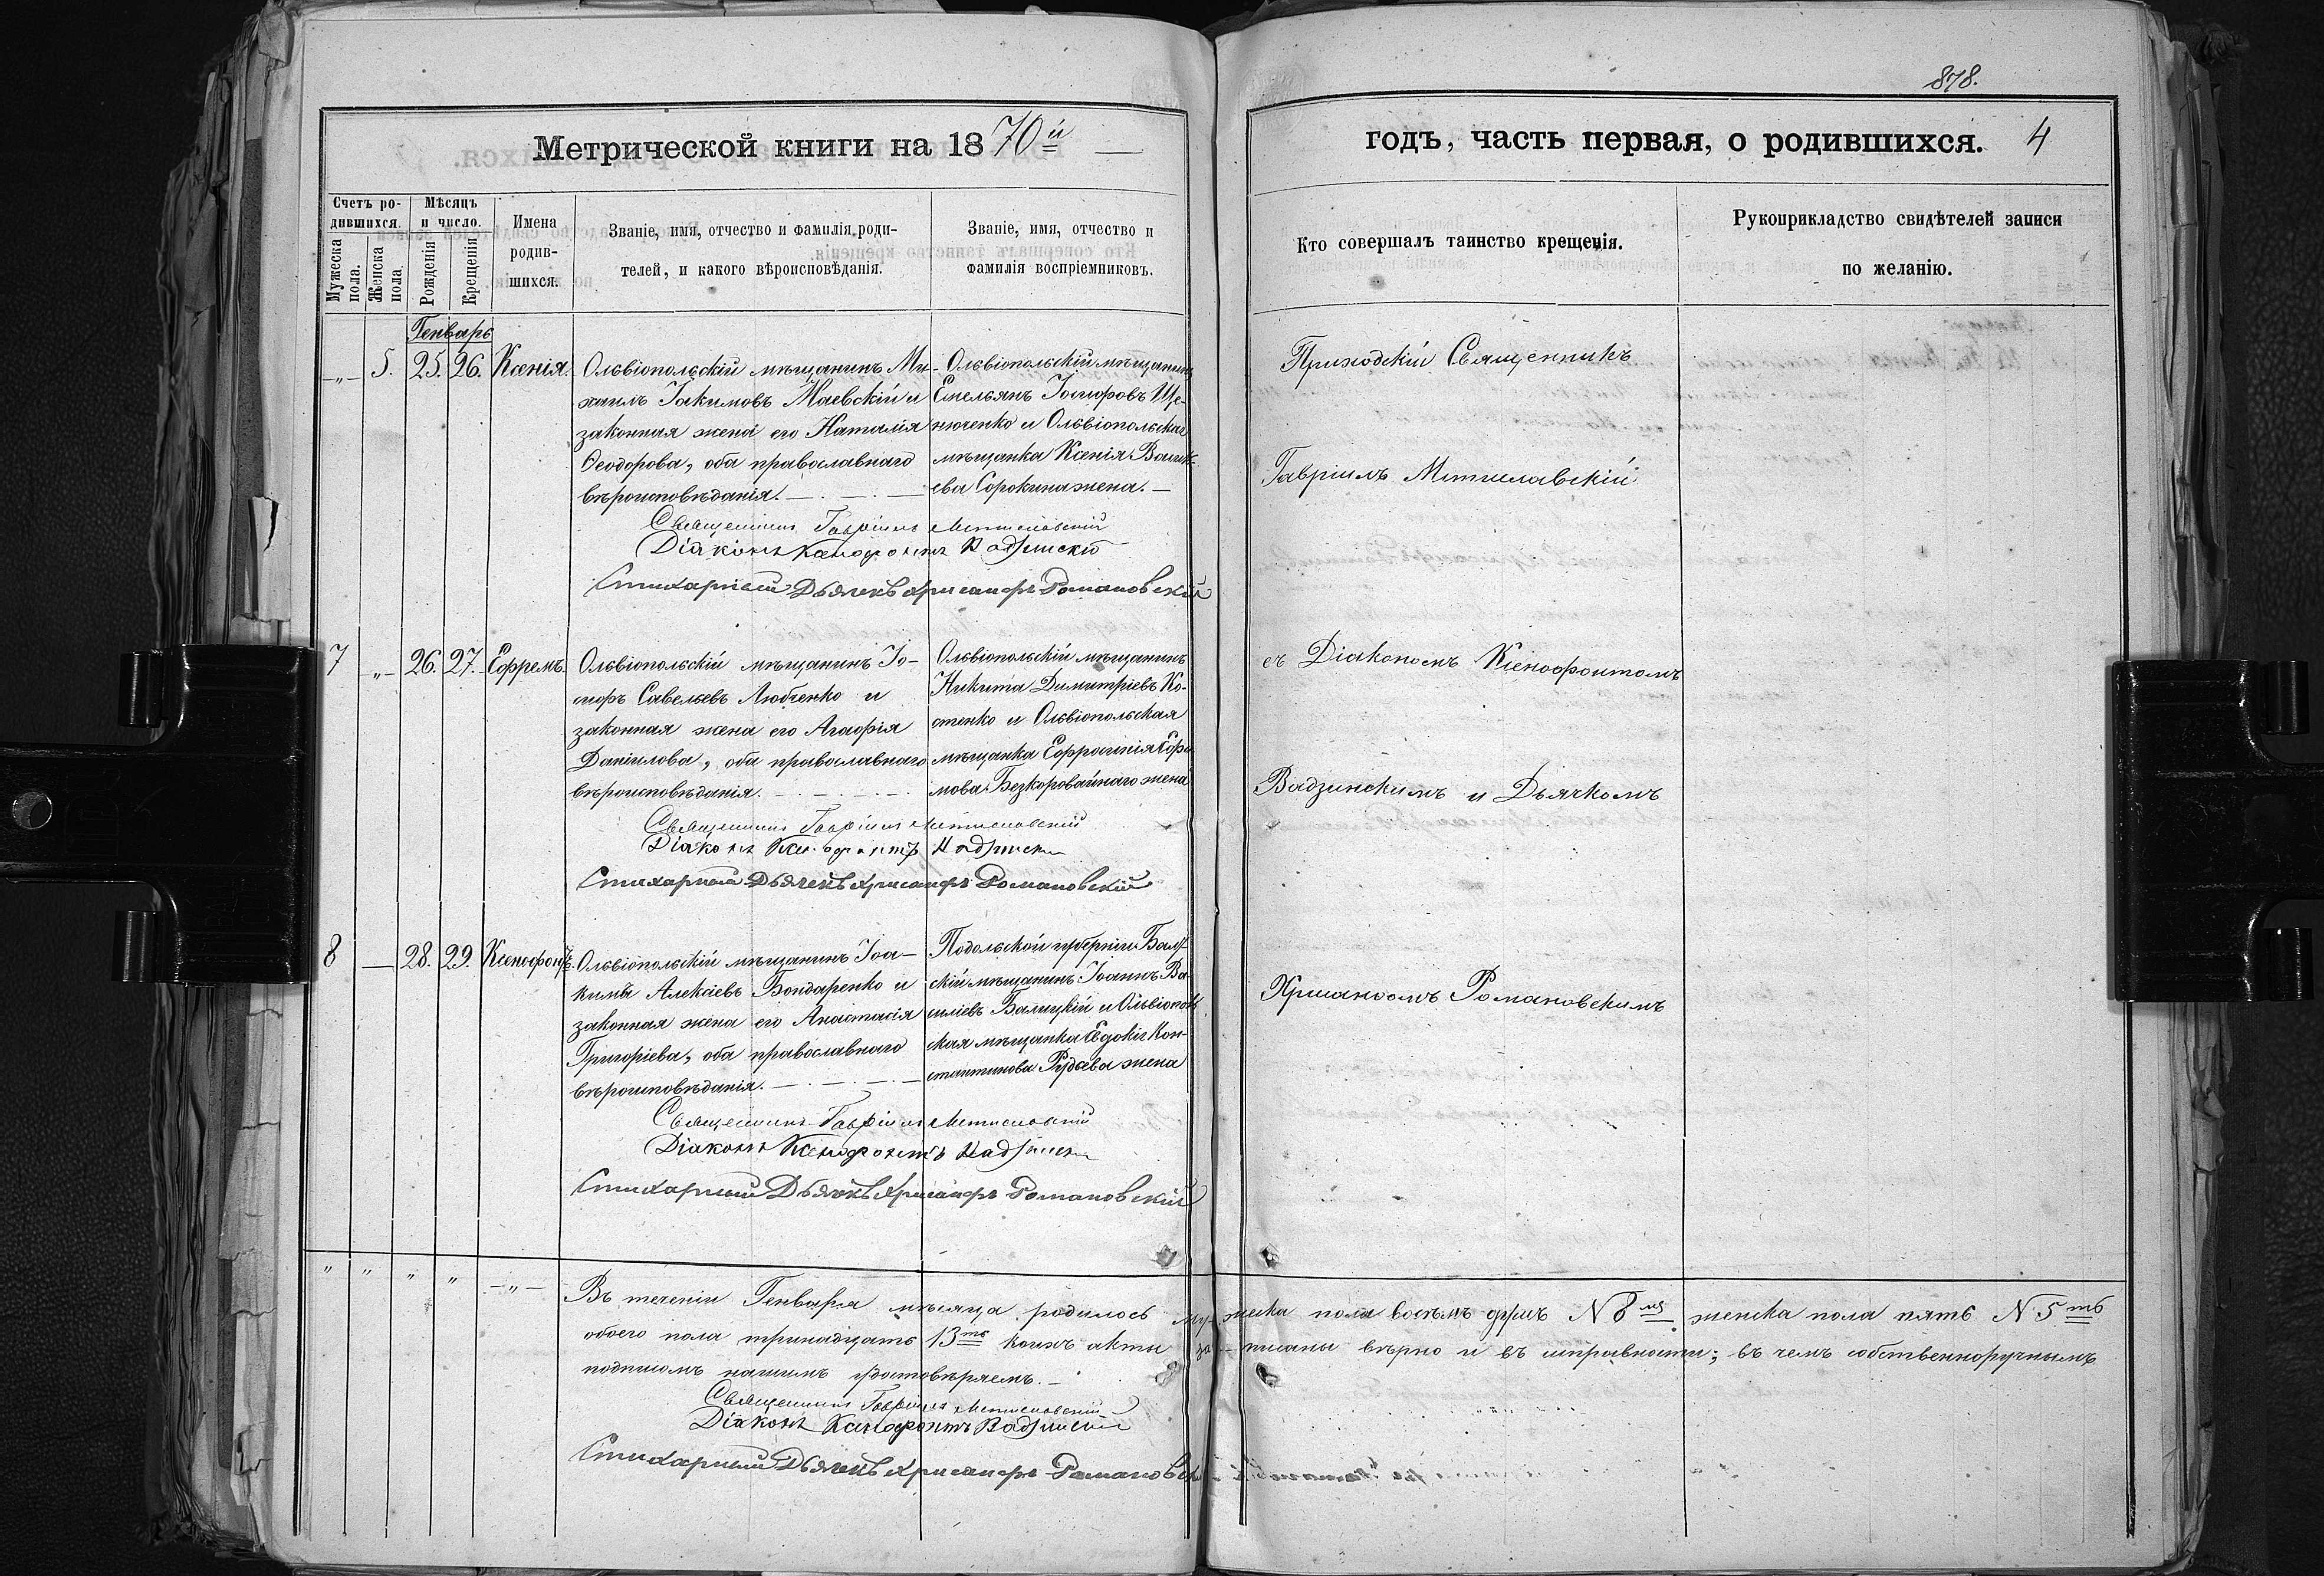 878.
Метрической книги на 1870й
годъ, часть первая, о родившихся. 4
Счетъ ро-
дившихся.
Мѣсяцъ
и число.
Мужеска
пола.
Женска
пола.
Рожденія
Крещенія
Имена
родив-
шихся.
Званіе, имя, отчество и фамилія роди-
телей, и какого вѣроисповѣданія.
Званіе, имя, отчество и
фамилія воспріемниковъ.
Кто совершалъ таинство крещенія.
Рукоприкладство свидѣтелей записи
по желанію.
Генварь
-„- 5. 25. 26. Ксенія.
Ольвіопольскій мѣщанинъ Ми-
хаилъ Іакимовъ Маевскій и
законная жена его Наталія
Ѳеодорова, оба православнаго
вѣроисповѣданія.
Ольвіопольскій мѣщанинъ
Емельянъ Іосифовъ Ще-
нюченко и Ольвіопольская
мѣщанка Ксенія Васил-
ева Сорокина жена.
Священникъ Гавріилъ Мстиславскій
Діаконъ Ксенофонтъ Вадзинскій
Стихарный Дьячекъ Хрисанфъ Романовскій
7 -„- 26. 27. Ефремъ.
Ольвіопольскій мѣщанинъ Іо-
сифъ Савельевъ Любченко и
законная жена его Агафія
Даніилова, оба православнаго
вѣроисповѣданія.
Ольвіопольскій мѣщанинъ
Никита Димитріевъ Ко-
стенко и Ольвіопольская
мѣщанка Евфросинія Ефи-
мова Безкоровайнаго жена
Священникъ Гавріилъ Мстиславскій
Діаконъ Ксенофонтъ Вадзинскій
Стихарный Дьячекъ Хрисанфъ Романовскій
8 — 28. 29. Ксенофонтъ.
Ольвіопольскій мѣщанинъ Іоа-
кимъ Алексіевъ Бондаренко и
законная жена его Анастасія
Григоріева, оба православнаго
вѣроисповѣданія.
Подольской губерніи Балт-
скій мѣщанинъ Іоаннъ Ва-
силіевъ Балицкій и Ольвіополь
ская мѣщанка Евдокія Кон-
стантинова Рудьева жена
Священникъ Гавріилъ Мстиславскій
Діаконъ Ксенофонтъ Вадзинскій
Стихарный Дьячекъ Хрисанфъ Романовскій
Приходскій Священникъ
Гавріилъ Мстиславскій
съ Діакономъ Ксенофонтомъ
Вадзинскимъ и Дьячкомъ
Хрисанфомъ Романовскимъ
„ „ „ „ -„-
Въ теченіи Генваря мѣсяца родилось мужеска пола восемь душъ N 8мь женска пола пять N 5ть
обоего пола тринадцать 13ть коихъ акты записаны вѣрно и въ исправности; въ чемъ собственноручнымъ
подписомъ нашимъ удостовѣряемъ.
Священникъ Гавріилъ Мстиславскій
Діаконъ Ксенофонтъ Вадзинскій
Стихарный Дьячекъ Хрисанфъ Романовскій